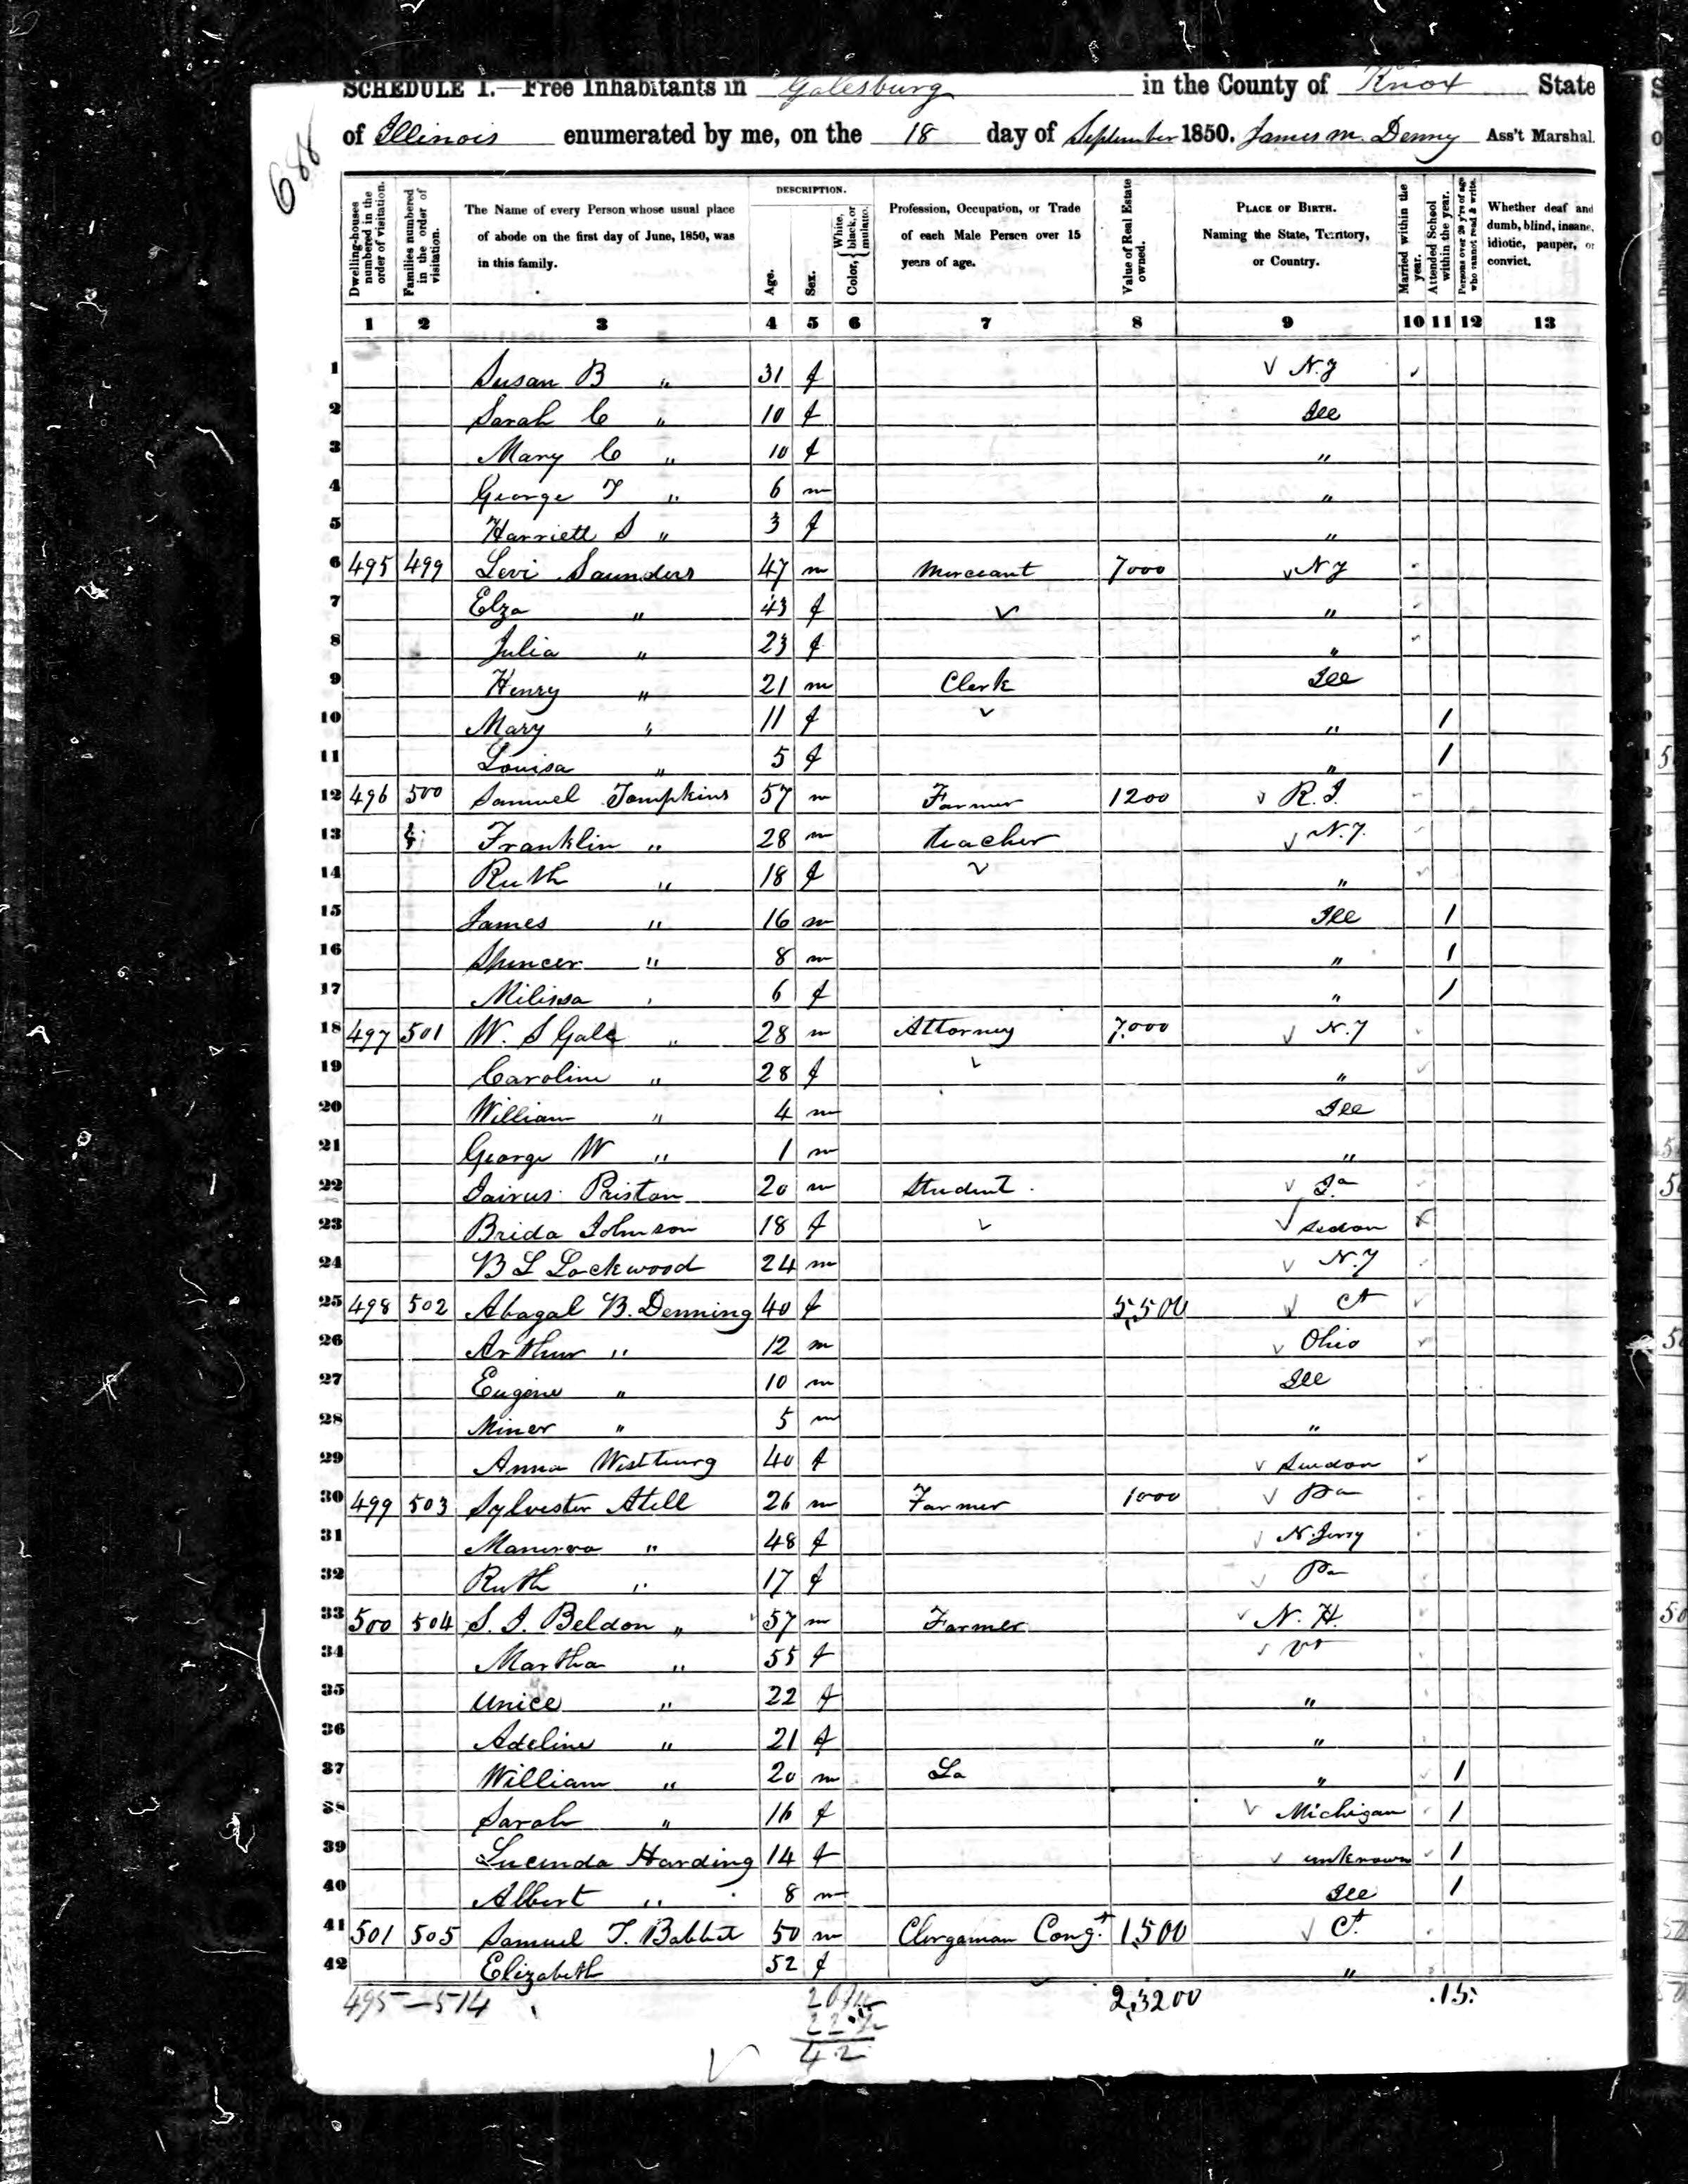 688
SCHEDULE I.—Free Inhabitants in Galesburg in the County of Knox State
of Illinois enumerated by me, on the 18 day of September 1850. James M. Denny Ass't Marshal.
Dwelling-houses numbered in the order of visitation.
Families numbered in the order of visitation.
The Name of every Person whose usual place of abode on the first day of June, 1850, was in this family.
DESCRIPTION.
Age.
Sex.
Color, White, black, or mulatto.
Profession, Occupation, or Trade of each Male Person over 15 years of age.
Value of Real Estate owned.
PLACE OF BIRTH. Naming the State, Territory, or Country.
Married within the year.
Attended School within the year.
Persons over 20 y'rs of age who cannot read & write.
Whether deaf and dumb, blind, insane, idiotic, pauper, or convict.
1 2 3 4 5 6 7 8 9 10 11 12 13
1 Susan B " 31 f N.Y
2 Sarah C " 10 f Ill
3 Mary C " 10 f "
4 George T " 6 m "
5 Harriett S " 3 f "
6 495 499 Levi Saunders 47 m Merceant 7000 N Y
7 Elza " 43 f "
8 Julia " 23 f "
9 Henry " 21 m Clerk Ill
10 Mary " 11 f " 1
11 Louisa " 5 f " 1
12 496 500 Samuel Tompkins 57 m Farmer 1200 R.I.
13 Franklin " 28 m teacher N.Y.
14 Ruth " 18 f "
15 James " 16 m Ill 1
16 Spencer " 8 m " 1
17 Milissa " 6 f " 1
18 497 501 W. S Gale " 28 m Attorney 7000 N.Y
19 Caroline " 28 f "
20 William " 4 m Ill
21 George W " 1 m "
22 Jairus Priston 20 m Student
23 Brida Johnson 18 f Sedon
24 B L Lockwood 24 m N.Y
25 498 502 Abagal B. Denning 40 f 5,500 Ct
26 Arthur " 12 m Ohio
27 Eugine " 10 m Ill
28 Miner " 5 m "
29 Anna Westburg 40 f Swdon
30 499 503 Sylvester Atell 26 m Farmer 1000 Pa
31 Manerva " 48 f N. Jersy
32 Ruth " 17 f Pa
33 500 504 S. J. Beldon " 57 m Farmer N. H.
34 Martha " 55 f Vt
35 Unice " 22 f "
36 Adeline " 21 f "
37 William " 20 m La " 1
38 Sarah " 16 f Michigan 1
39 Lucinda Harding 14 f unknown 1
40 Albert " 8 m Ill 1
41 501 505 Samuel T. Babbit 50 m Clergaman Cong.t 1,500 Ct.
42 Elizabeth 52 f "
495—514 2,3200 .15.
42